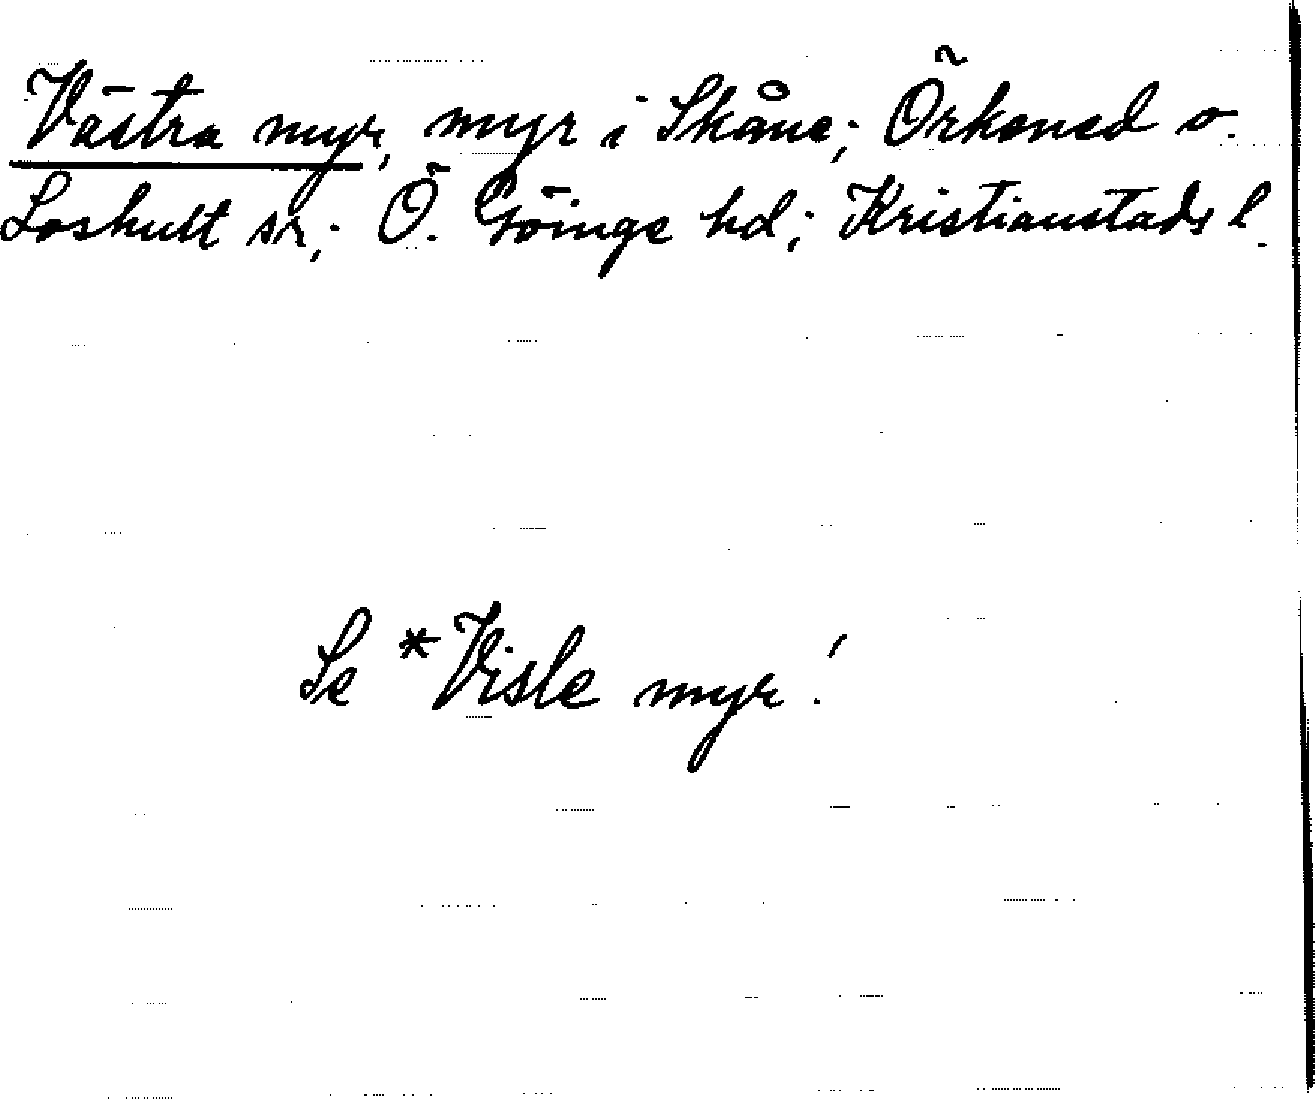 Västra myr, myr i Skåne; Örkened o.
Loshult sn; Ö. Göinge hd; Kristianstads l.
Se *Visle myr!